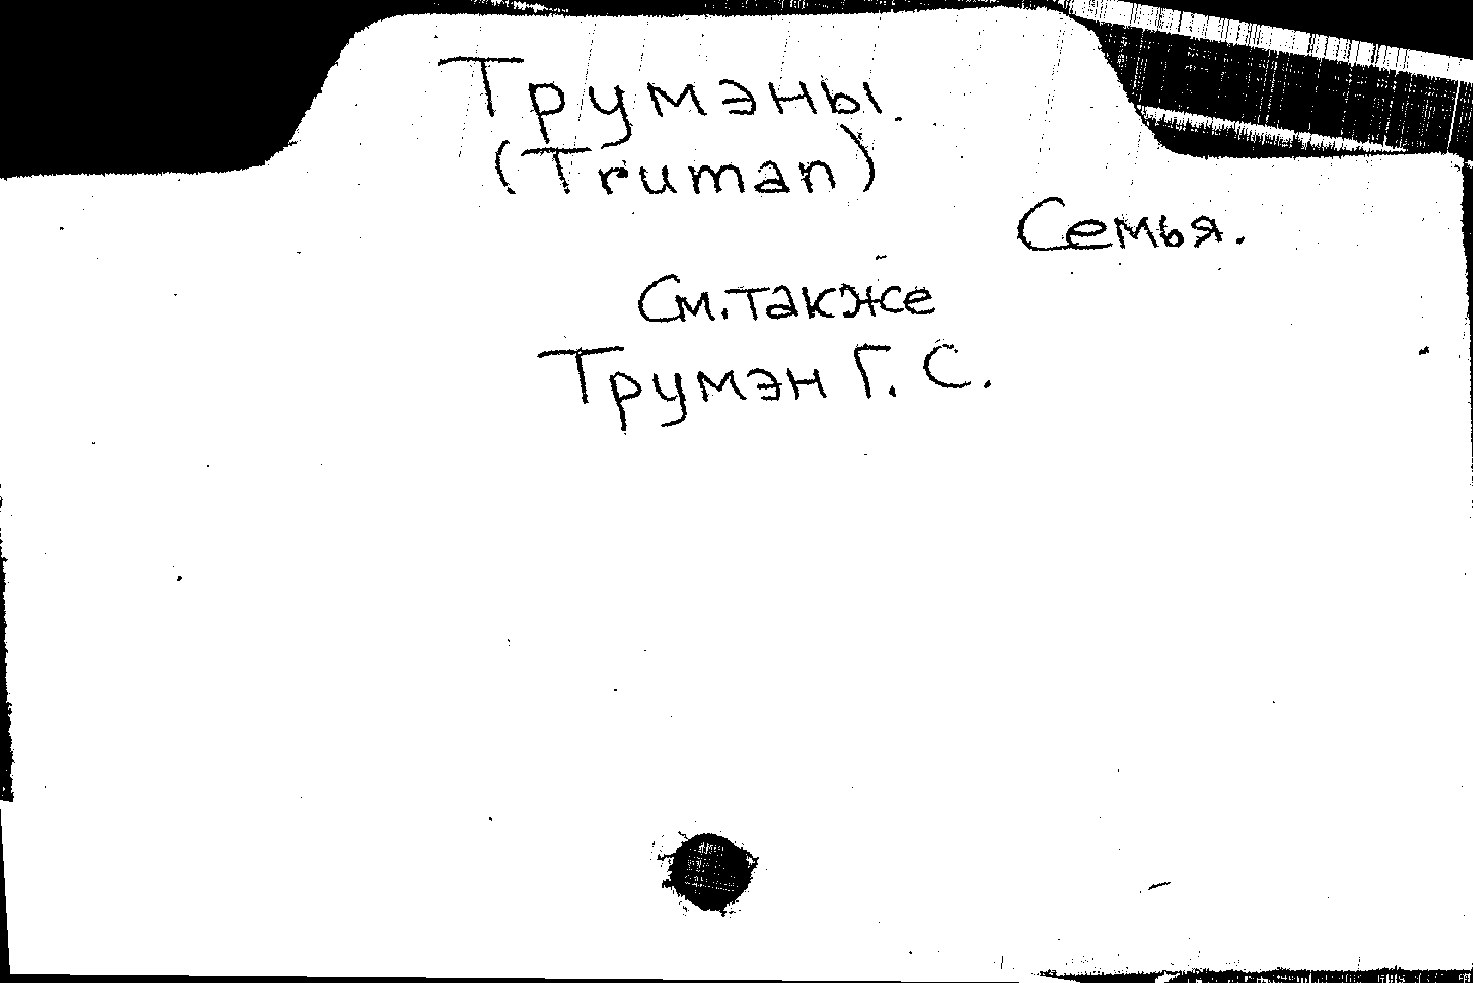 Трумэны.
(Truman)
Семья.
См. также
Трумэн Г. С.